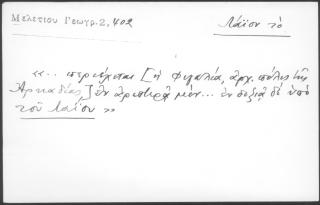 Μελετίου Γεωγρ. 2, 402
Λάϊον τὸ
«... περιέχεται [ἡ Φιγαλία, ἀρχ. πόλις τῆς
Ἀρκαδίας] ἐν ἀριστερᾷ μὲν... ἐν δεξιᾷ δὲ ὑπὸ
τοῦ Λαΐου »